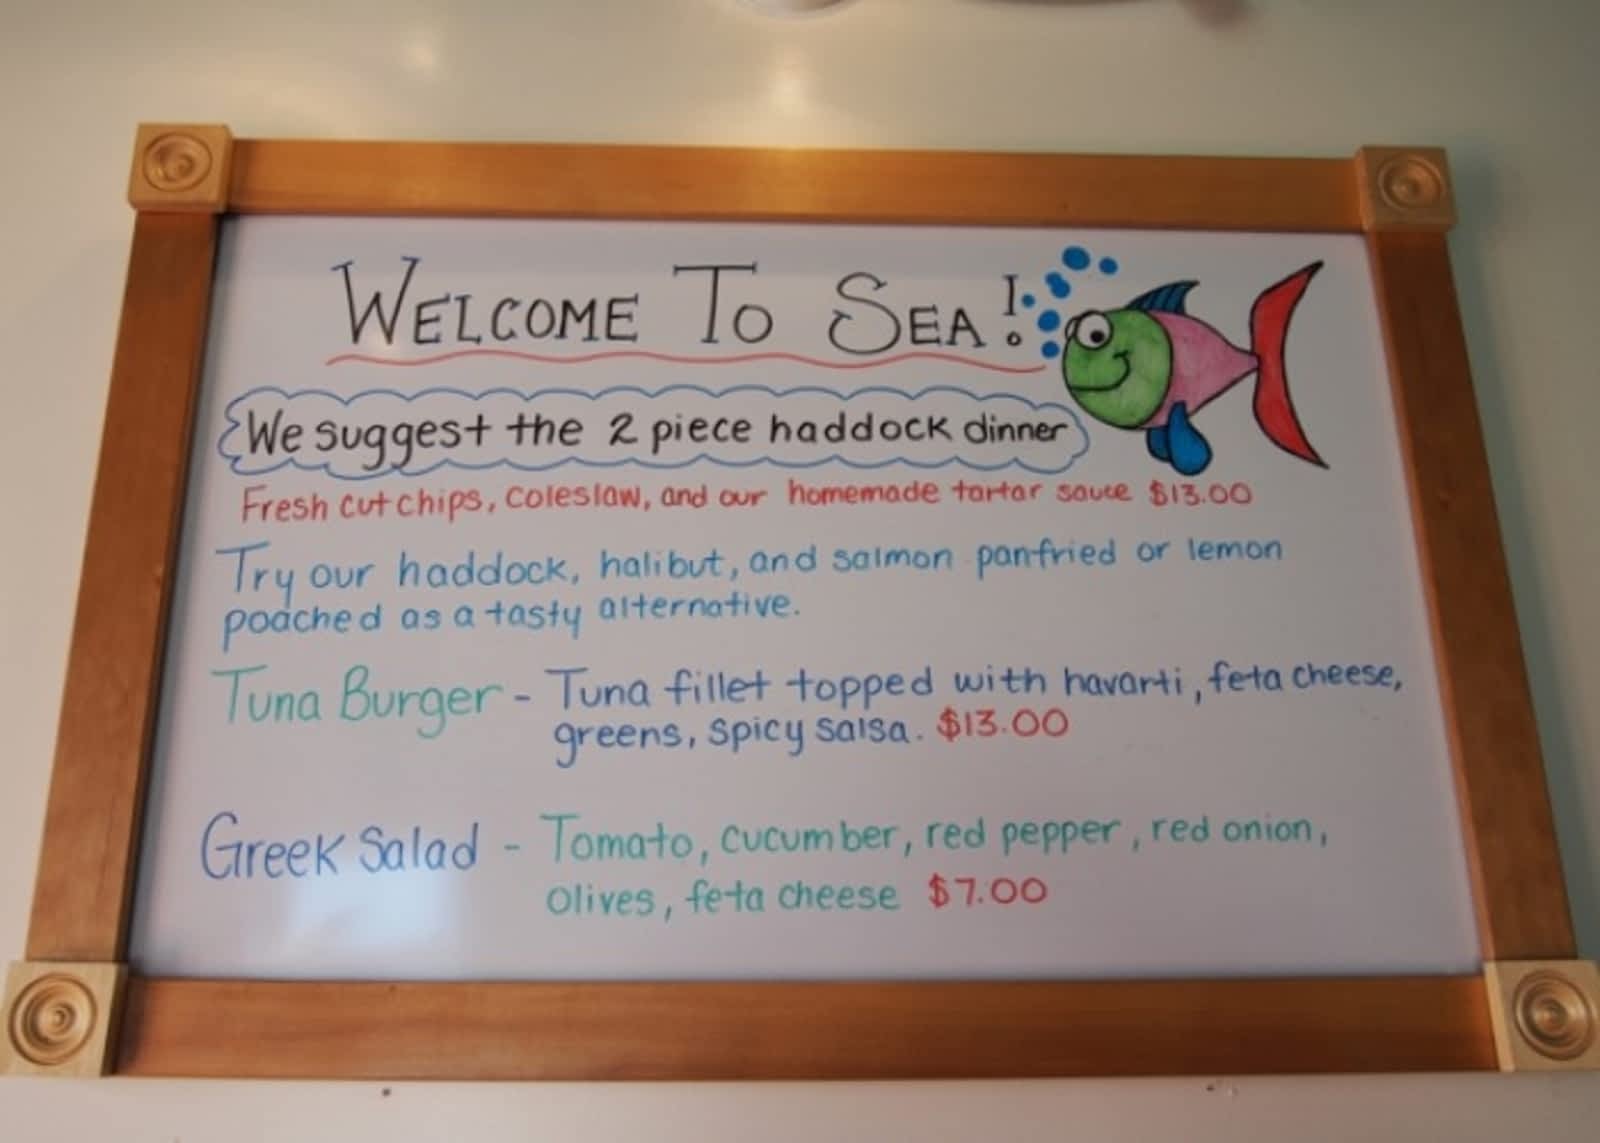 WELCOME TO SEA!
We suggest the 2 piece haddock dinner
Fresh cut chips, coleslaw, and our homemade tartar sauce $13.00
Try our haddock, halibut, and salmon panfried or lemon
poached as a tasty alternative.
Tuna Burger - Tuna fillet topped with havarti, feta cheese,
greens, spicy salsa. $13.00
Greek Salad - Tomato, cucumber, red pepper, red onion,
olives, feta cheese $7.00